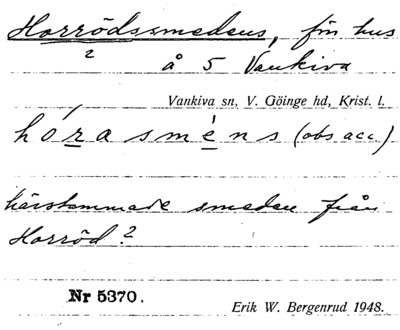 Horrödssmedens, f.n hus
2
å 5 Vankiva
Vankiva sn, V. Göinge hd, Krist. l.
hórasméns (obs acc.)
härstammade smeden från
Horröd?
Nr 5370.
Erik W. Bergenrud 1948.